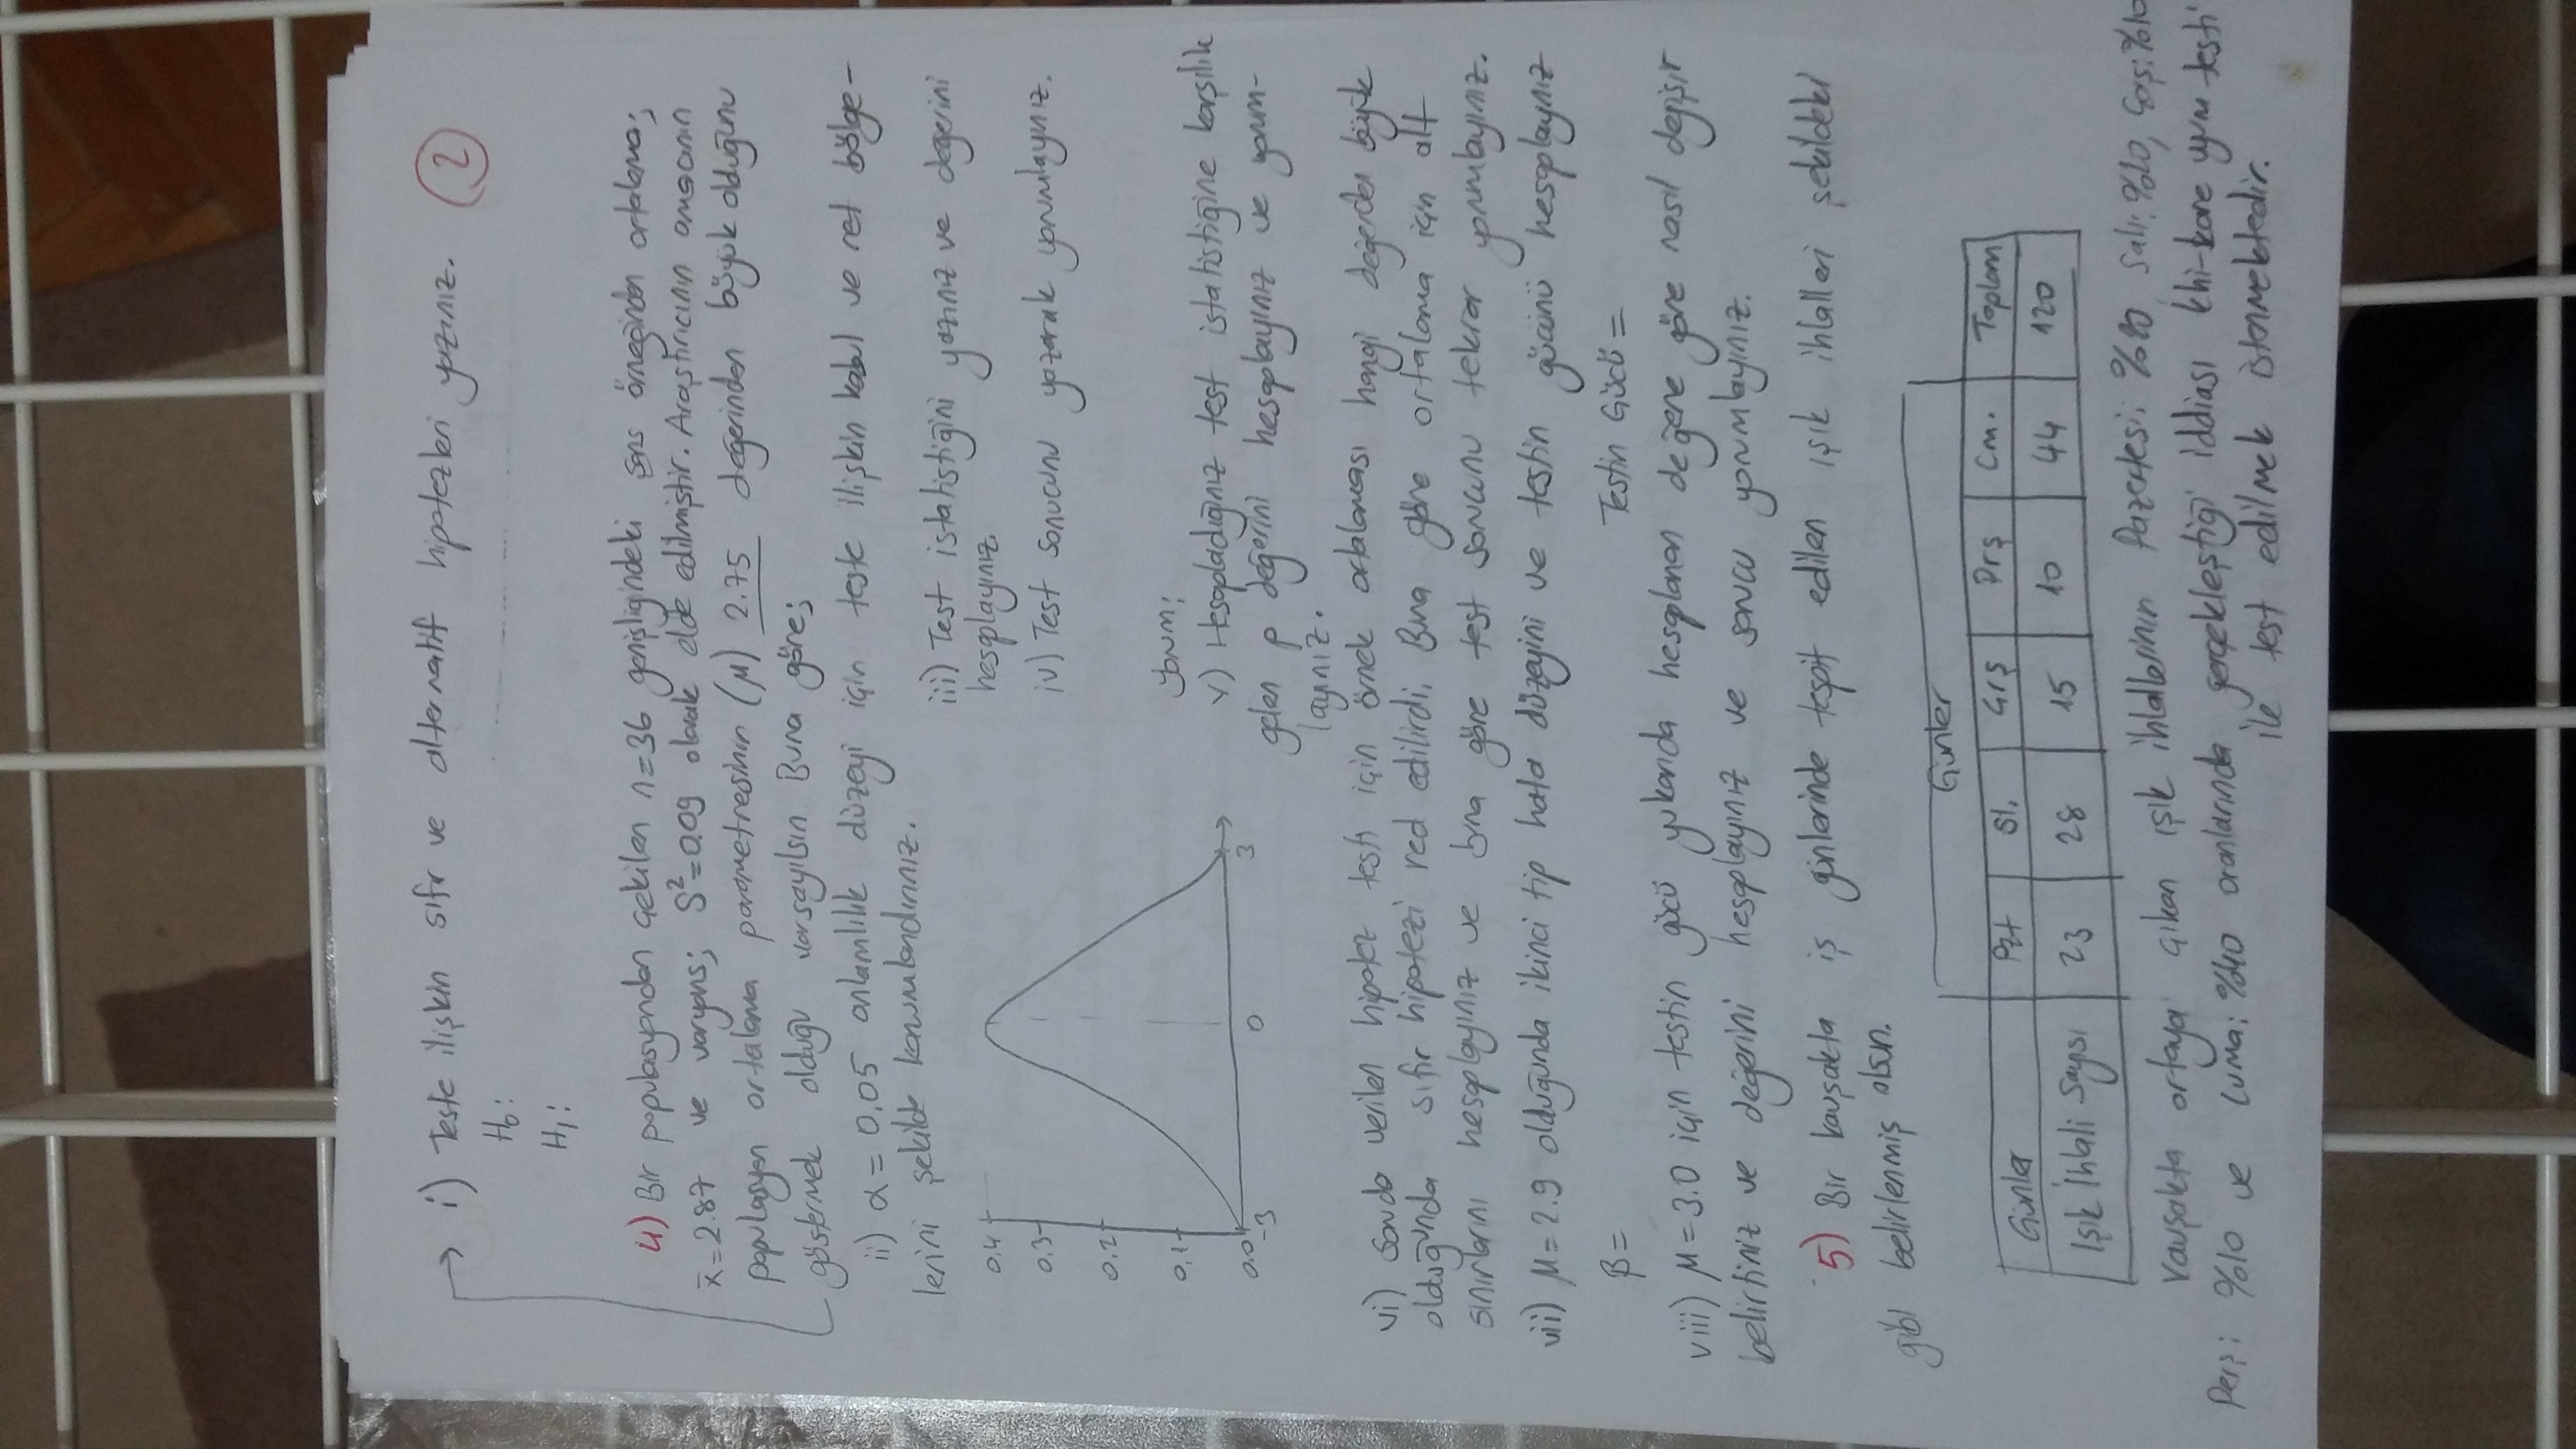 i) Teste ilişkin sıfır ve alternatif hipotezleri yazınız. 2
H0:
H1:
4) Bir populasyondan çekilen n=36 genişliğindeki şans örneğinden ortalama;
x̄=2.87 ve varyans; S²=0.09 olarak elde edilmiştir. Araştırıcının amacının
populasyon ortalama parametresinin (μ) 2.75 değerinden büyük olduğunu
göstermek olduğu varsayılsın. Buna göre;
ii) α = 0,05 anlamlılık düzeyi için teste ilişkin kabul ve ret bölge-
lerini şekilde konumlandırınız.
iii) Test istatistiğini yazınız ve değerini
hesaplayınız.
iv) Test sonucunu yazarak yorumlayınız.
0.4
0,3
0,2
0,1
0,0
-3 0 3
Yorum;
v) Hesapladığınız test istatistiğine karşılık
gelen p değerini hesaplayınız ve yorum-
layınız.
vi) Soruda verilen hipotez testi için örnek ortalaması hangi değerden büyük
olduğunda sıfır hipotezi red edilirdi. Buna göre ortalama için alt
sınırlarını hesaplayınız ve buna göre test sonucunu tekrar yorumlayınız.
vii) μ=2.9 olduğunda ikinci tip hata düzeyini ve testin gücünü hesaplayınız
β= Testin Gücü=
viii) μ=3.0 için testin gücü yukarıda hesaplanan değere göre nasıl değişir
belirtiniz ve değerini hesaplayınız ve sonucu yorumlayınız.
5) Bir kavşakta iş günlerinde tespit edilen ışık ihlalleri şekildeki
gibi belirlenmiş olsun.
Günler
Günler Pzt Sl. Çrş Prş Cm. Toplam
Işık İhlali Sayısı 23 28 15 10 44 120
Kavşakta ortaya çıkan ışık ihlallerinin Pazertesi; %20 Salı; %20, Çarş; %10
Perş; %10 ve Cuma; %40 oranlarında gerçekleştiği iddiası khi-kare uyum testi
ile test edilmek istenmektedir.